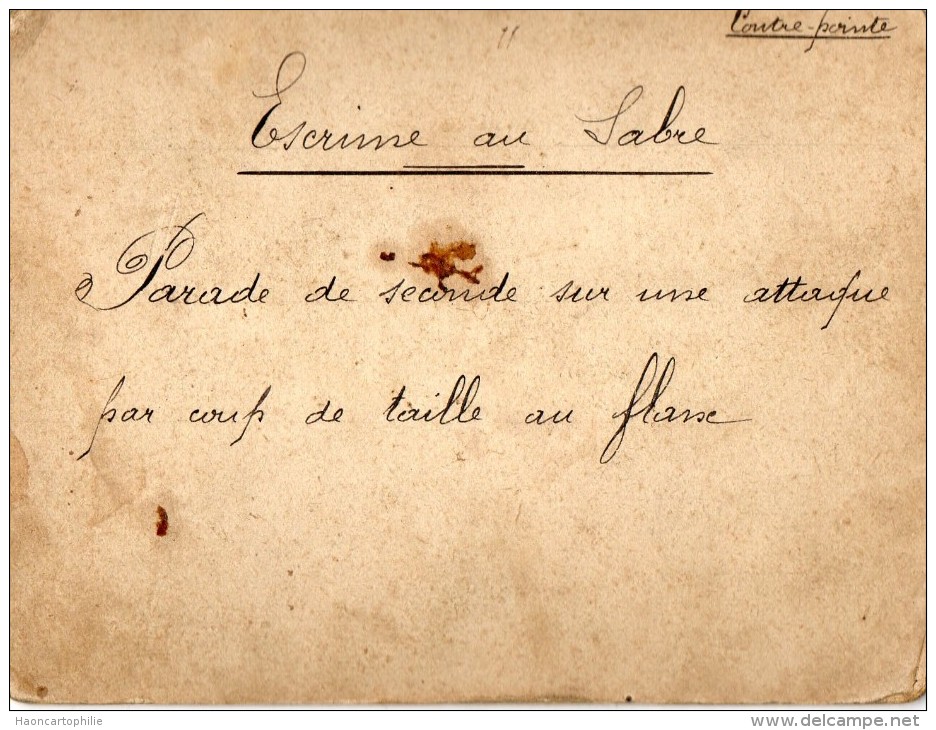 Contre-pointe
11
Escrime au Sabre
Parade de seconde sur une attaque
par coup de taille au flanc
Haoncartophilie
www.delcampe.net